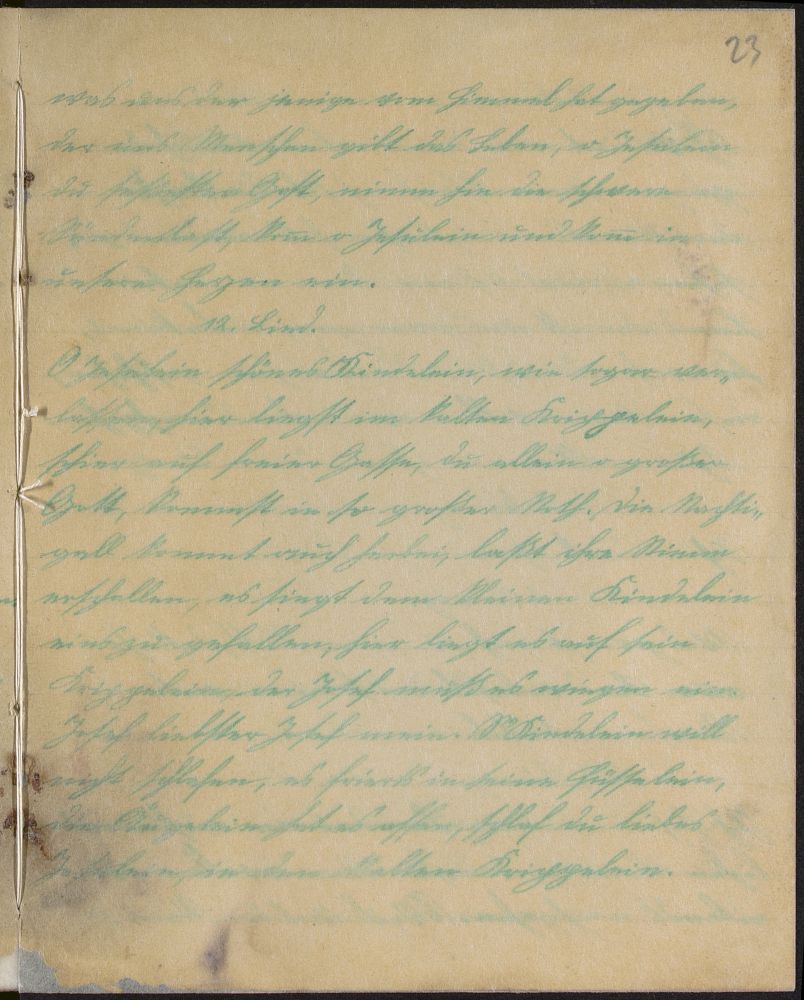 23
was uns der jenige vom Himmel hat gegeben,
der uns Menschen gibt das Leben, o Jesulein
du süssester Gast, nimm hin die schwere
Sündenlast, kom̅ o Jesulein und kom̅ in
unsere Herzen ein.
12. Lied.
O Jesulein schönes Kindelein, wie sogar ver„
lassen, hier liegst im kalten Krippelein,
schier auf freier Gasse, du allein o großer
Gott, kommst in so großer Noth. Die Nachti„
gall kommt auch herbei, laßt ihre Stimm
erschallen, es singt dem kleinen Kindelein
eins zu gefallen, hier liegt es auf sein
Krippelein der Josef muß es wiegen ein.
Josef liebster Josef mein. S' Kindelein will
nicht schlafen, es frierts in seine Füsselein,
die Äugelein hat es offen, schlaf du liebes
Jesulein, in den kalten Krippelein.